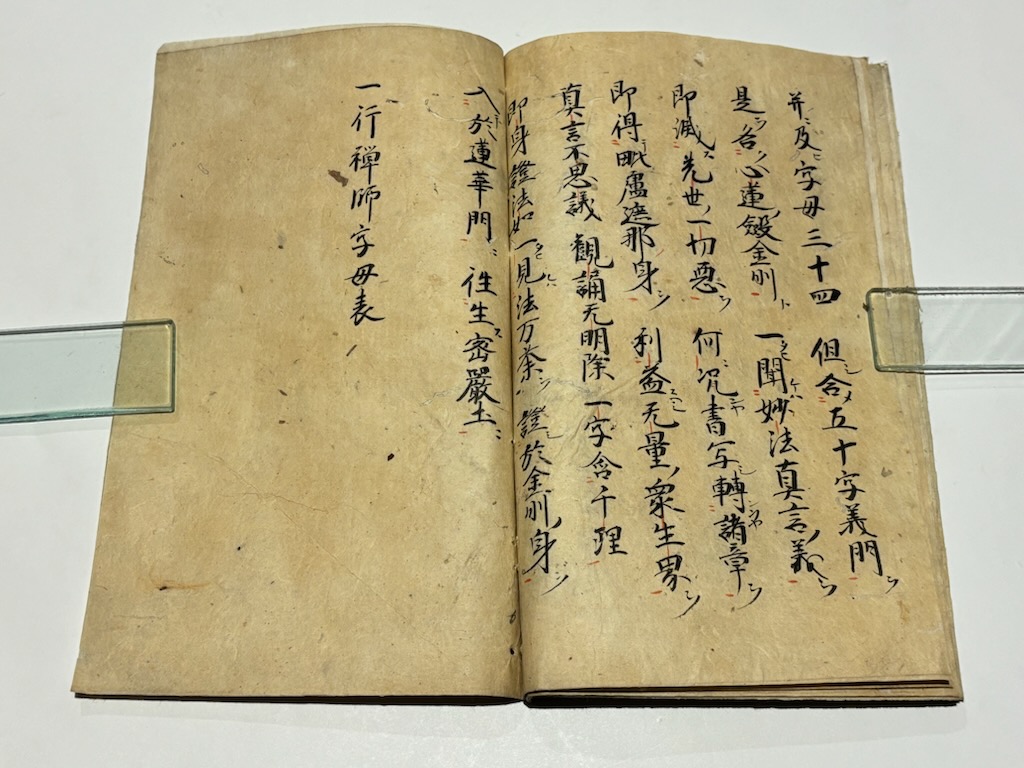 并及字母三十四 但含五十字義門
是名心蓮金剛 一聞妙法真言義
即滅先世一切惡 何况書写轉諸章
即得毗盧遮那身 利益无量衆生界
真言不思議 観誦无明除 一字含千理
即身證法如 一見法万荼 證於金剛身
入於蓮華門 往生密嚴土
一行禅師字母表